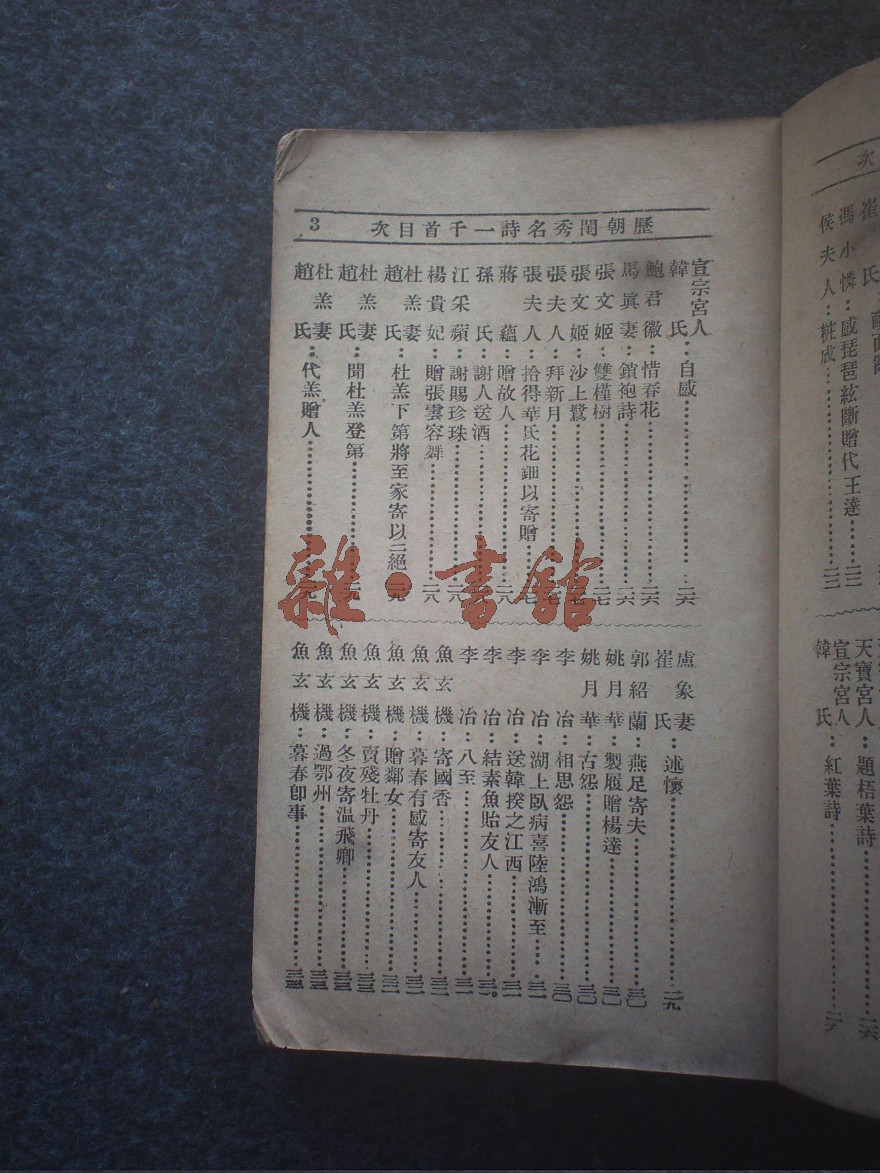 歷朝閨秀名詩一千首目次 3
宣宗宮人韓氏：自感……二六
鮑君徽：惜春花……二六
馬眞妻：鎖袍詩……二六
張文姬：雙槿樹……二七
張文姬：沙上鷺……二七
張夫人：拜新月……二七
張夫人：拾得華氏花鈿以寄贈……二七
蔣蘊：贈故人……二八
孫氏：謝人送酒……二八
江采蘋：謝賜珍珠……二八
楊貴妃：贈張雲容舞……二八
杜羔妻趙氏：杜羔下第將至家寄以二絕……二九
杜羔妻趙氏：聞杜羔登第……二九
杜羔妻趙氏：代羔贈人……二九
盧象妻崔氏：述懷……二九
郭紹蘭：燕足寄夫……三〇
姚月華：製履贈楊達……三〇
姚月華：古怨……三〇
李冶：相思怨……三〇
李冶：湖上臥病喜陸鴻漸至……三一
李冶：送韓揆之江西……三一
李冶：結素魚貽友人……三一
李冶：八至……三一
魚玄機：寄國香……三二
魚玄機：暮春有感寄友人……三二
魚玄機：贈鄰女……三二
魚玄機：賣殘牡丹……三三
魚玄機：冬夜寄温飛卿……三三
魚玄機：過鄂州……三三
魚玄機：暮春卽事……三四
次
崔氏
馮小憐：感琵琶絃斷贈代王達……二三
侯夫人：粧成……二三
天寶宮人：題梧葉詩……二六
宣宗宮人韓氏：紅葉詩……二六
雜·書館